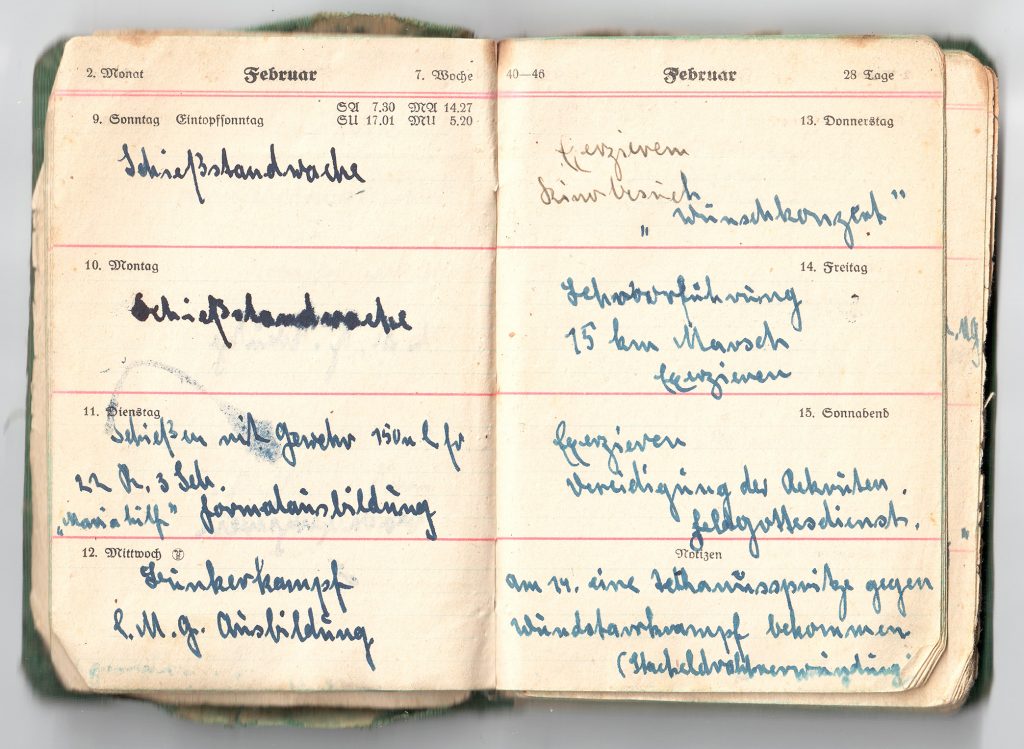 2. Monat Februar 7. Woche
SA 7.30 MA 14.27
9. Sonntag Eintopfsonntag SU 17.01 MU 5.20
Schießstandwache
10. Montag
Schießstandwache
11. Dienstag
Schießen mit Gewehr 150m
22 R. 3 Sch.
"Mariahilf" Formalausbildung
12. Mittwoch
Bunkerkampf
L.M.G. Ausbildung
40—46 Februar 28 Tage
13. Donnerstag
Exerzieren
Kinobesuch
"Wunschkonzert"
14. Freitag
15 km Marsch
Exerzieren
15. Sonnabend
Exerzieren
Vereidigung der Rekruten.
Feldgottesdienst.
Notizen
am 14. eine Tethanusspritze gegen
Wundstarrkrampf bekommen
(Stacheldrahtverwundung